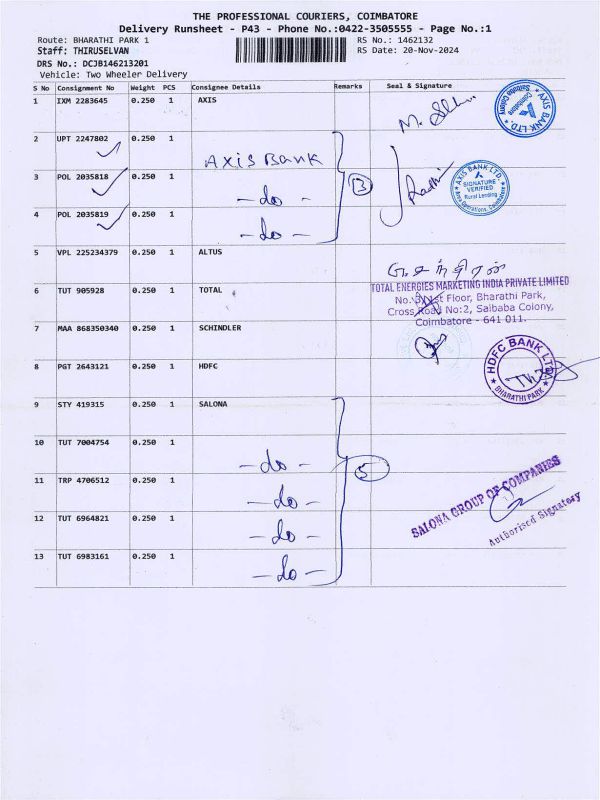 THE PROFESSIONAL COURIERS, COIMBATORE
Delivery Runsheet - P43 - Phone No.:0422-3505555 - Page No.:1
Route: BHARATHI PARK 1
RS No.: 1462132
Staff: THIRUSELVAN
RS Date: 20-Nov-2024
DRS No.: DCJB146213201
Vehicle: Two Wheeler Delivery
S No Consignment No Weight PCS Consignee Details Remarks Seal & Signature
1 IXM 2283645 0.250 1 AXIS
AXIS BANK LTD.
Coimbatore
Saibaba Colony
2 UPT 2247802 0.250 1
Axis Bank
3 POL 2035818 0.250 1
- do -
3
AXIS BANK LTD.
SIGNATURE
VERIFIED
Rural Lending
4 POL 2035819 0.250 1
- do -
5 VPL 225234379 0.250 1 ALTUS
6 TUT 905928 0.250 1 TOTAL
TOTAL ENERGIES MARKETING INDIA PRIVATE LIMITED
1st Floor, Bharathi Park,
Cross Road No:2, Saibaba Colony,
Coimbatore - 641 011.
7 MAA 868350340 0.250 1 SCHINDLER
8 PGT 2643121 0.250 1 HDFC
HDFC BANK LTD
BHARATHI PARK
9 STY 419315 0.250 1 SALONA
10 TUT 7004754 0.250 1
- do -
5
11 TRP 4706512 0.250 1
- do -
SALONA GROUP OF COMPANIES
Authorised Signatory
12 TUT 6964821 0.250 1
- do -
13 TUT 6983161 0.250 1
- do -